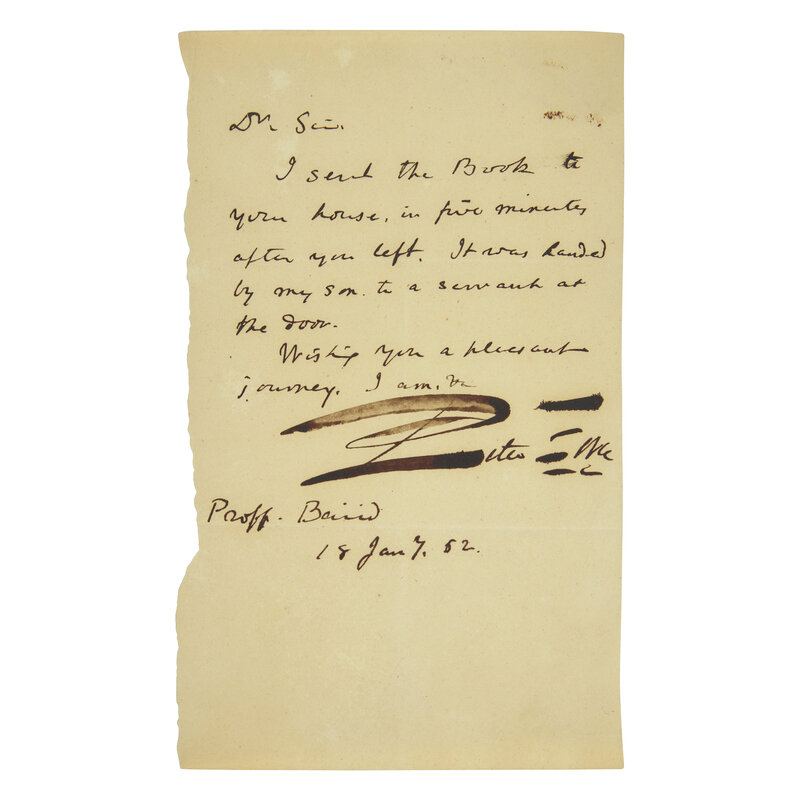 Dr. Sir.
I sent the Book to
your house, in five minutes
after you left. It was handed
by my son to a servant at
the door.
Wishing you a pleasant
journey. I am.
Peter Force
Proff. Baird
18 Jany. 52.